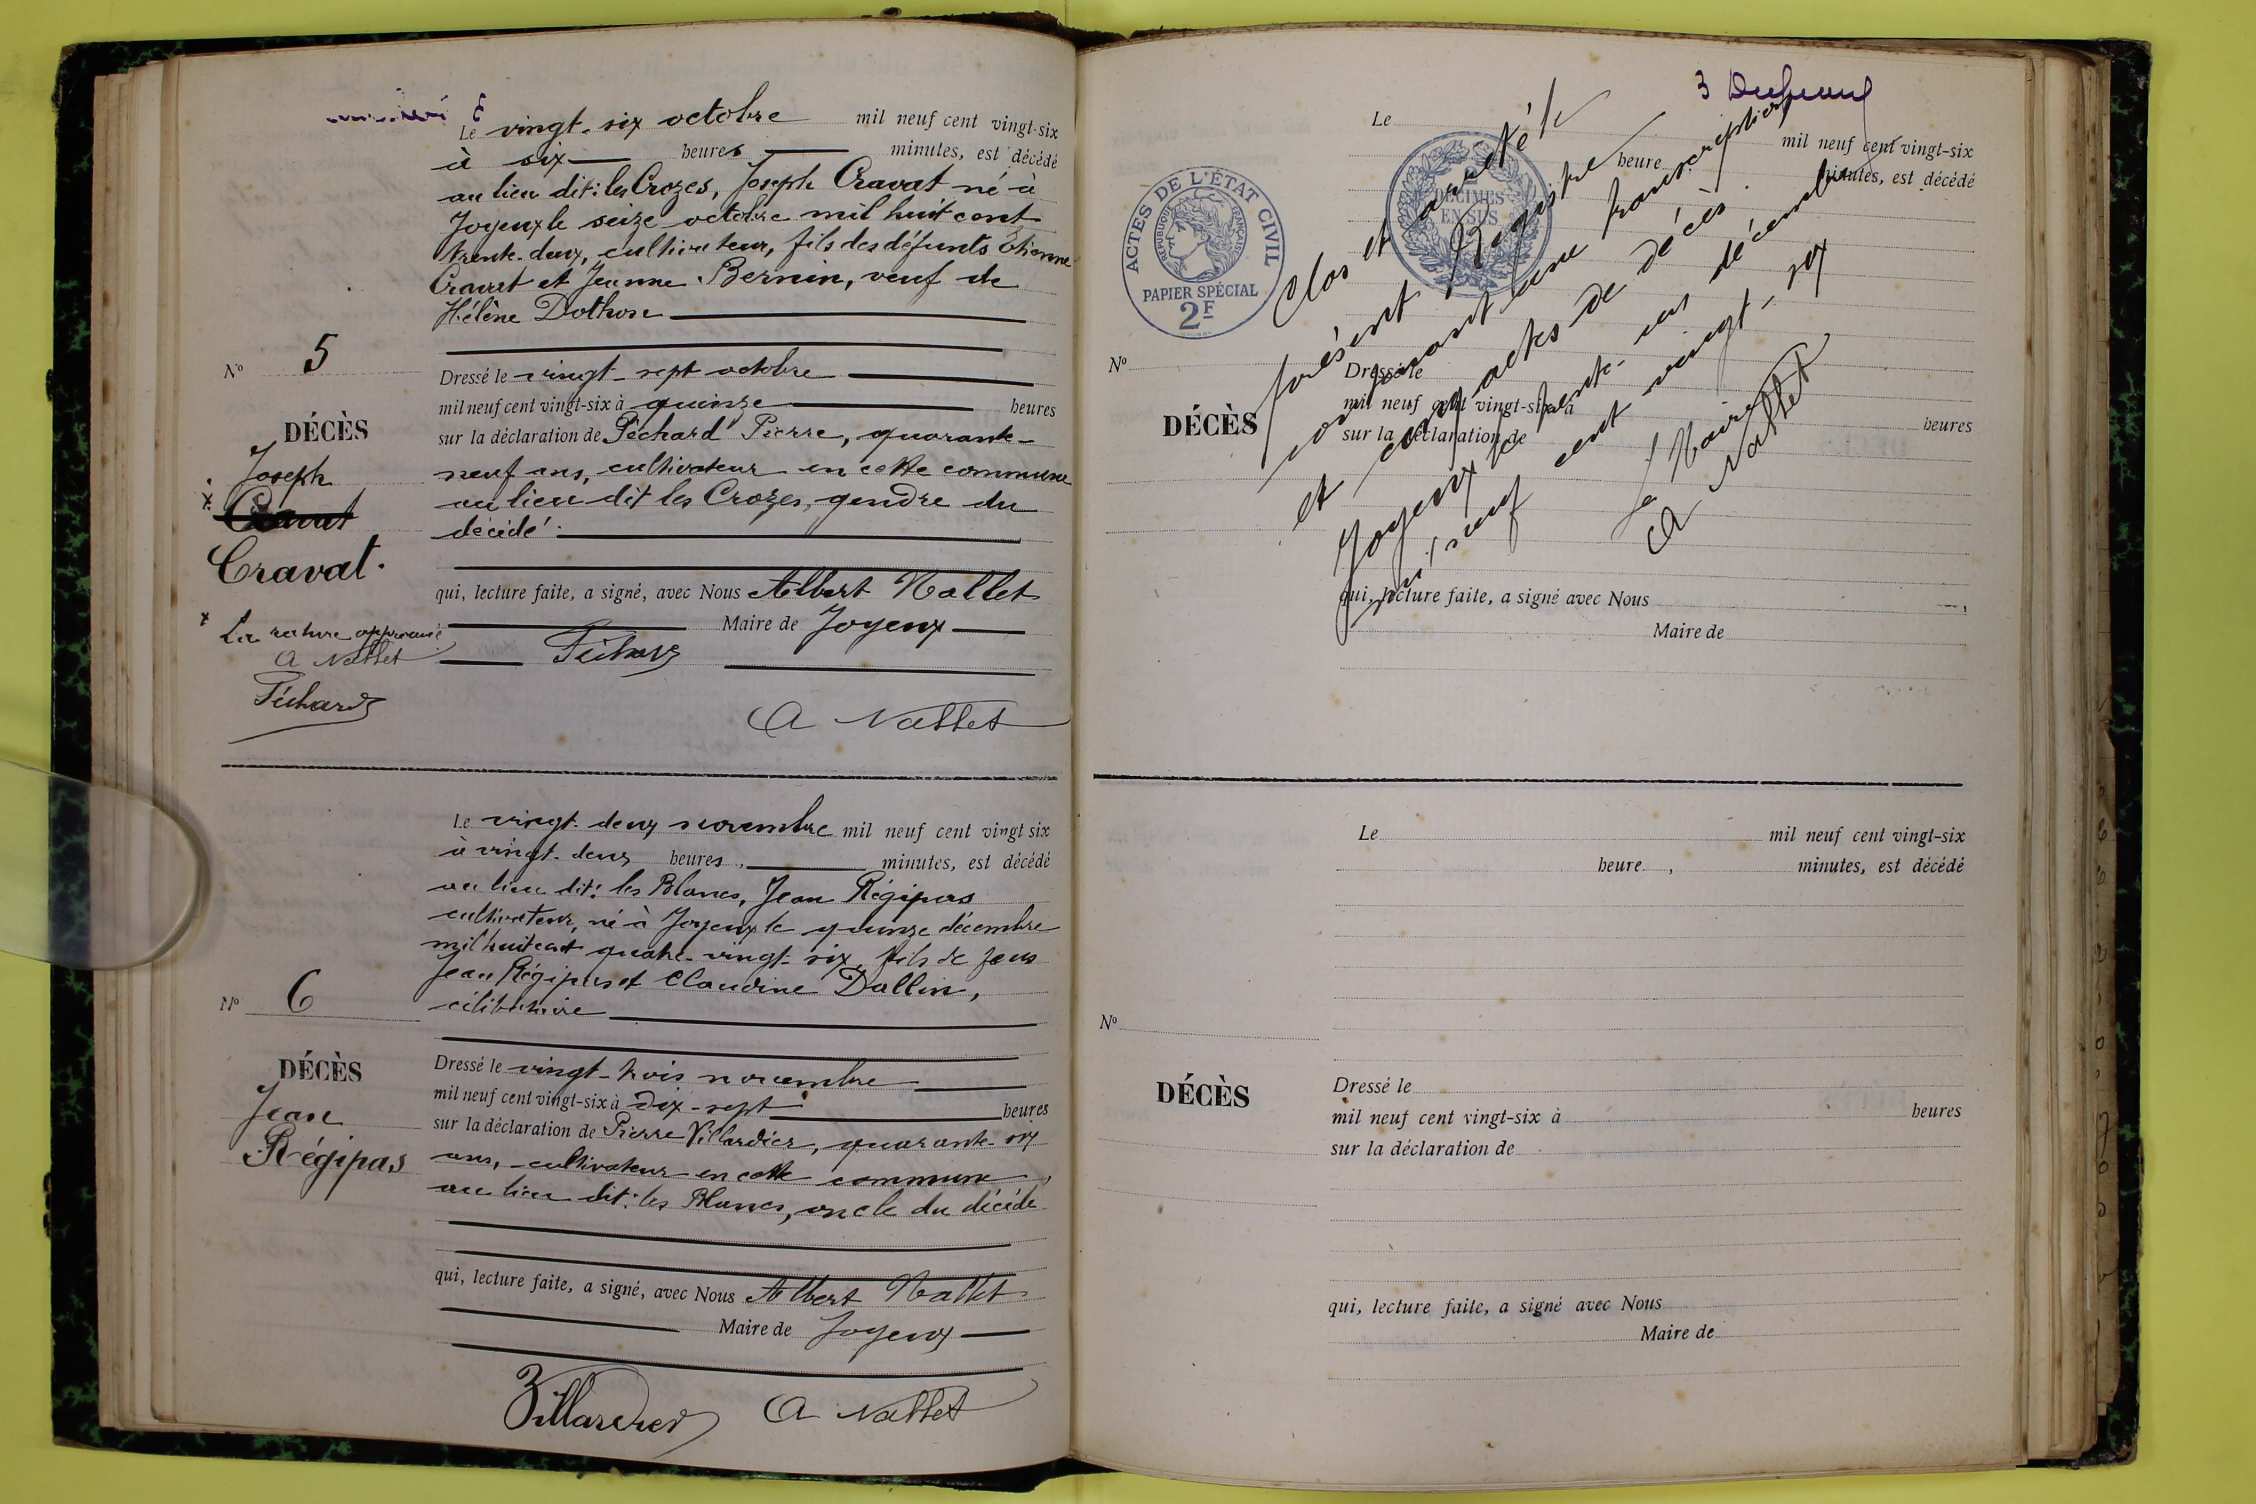 Le vingt-six octobre mil neuf cent vingt-six
à six heures minutes, est décédé
au lieu dit: les Crozes, Joseph Cravat né à
Joyeux le seize octobre mil huit cent
trente-deux, cultivateur, fils des défunts Etienne
Cravat et Jeanne Bernin, veuf de
Hélène Dothon
N° 5
Dressé le vingt-sept octobre
mil neuf cent vingt-six à quinze heures
DÉCÈS
sur la déclaration de Péchard Pierre, quarante-
Joseph
neuf ans, cultivateur en cette commune
x Cravat
au lieu dit les Crozes, gendre du
décédé.
Cravat.
qui, lecture faite, a signé, avec Nous Albert Nallet
Maire de Joyeux
x La rature approuvée
A Nallet
Péchard
Péchard
A Nallet
Le vingt-deux novembre mil neuf cent vingt six
à vingt-deux heures, minutes, est décédé
au lieu dit: les Blancs, Jean Régipas
cultivateur, né à Joyeux le quinze décembre
mil huit cent quatre-vingt-six, fils de feus
Jean Régipas et Claudine Dallin,
célibataire
N° 6
Dressé le vingt-trois novembre
mil neuf cent vingt-six à dix-sept heures
DÉCÈS
sur la déclaration de Pierre Villardier, quarante-six
Jean
ans, cultivateur en cette commune,
Régipas
au lieu dit: les Blancs, oncle du décédé
qui, lecture faite, a signé, avec Nous Albert Nallet
Maire de Joyeux
Villardier A Nallet
3
ACTES DE L'ÉTAT CIVIL
RÉPUBLIQUE FRANÇAISE
PAPIER SPÉCIAL
2F
2 DÉCIMES
EN SUS
Clos et arrêté le
présent Registre
comprenant une transcription
et cinq actes de décès.
Joyeux le trente-un décembre
mil neuf cent vingt-six
Le Maire
A Nallet
Le mil neuf cent vingt-six
heure minutes, est décédé
N°
Dressé le
mil neuf cent vingt-six à heures
DÉCÈS
sur la déclaration de
qui, lecture faite, a signé avec Nous
Maire de
Le mil neuf cent vingt-six
heure, minutes, est décédé
N°
Dressé le
DÉCÈS
mil neuf cent vingt-six à heures
sur la déclaration de
qui, lecture faite, a signé avec Nous
Maire de